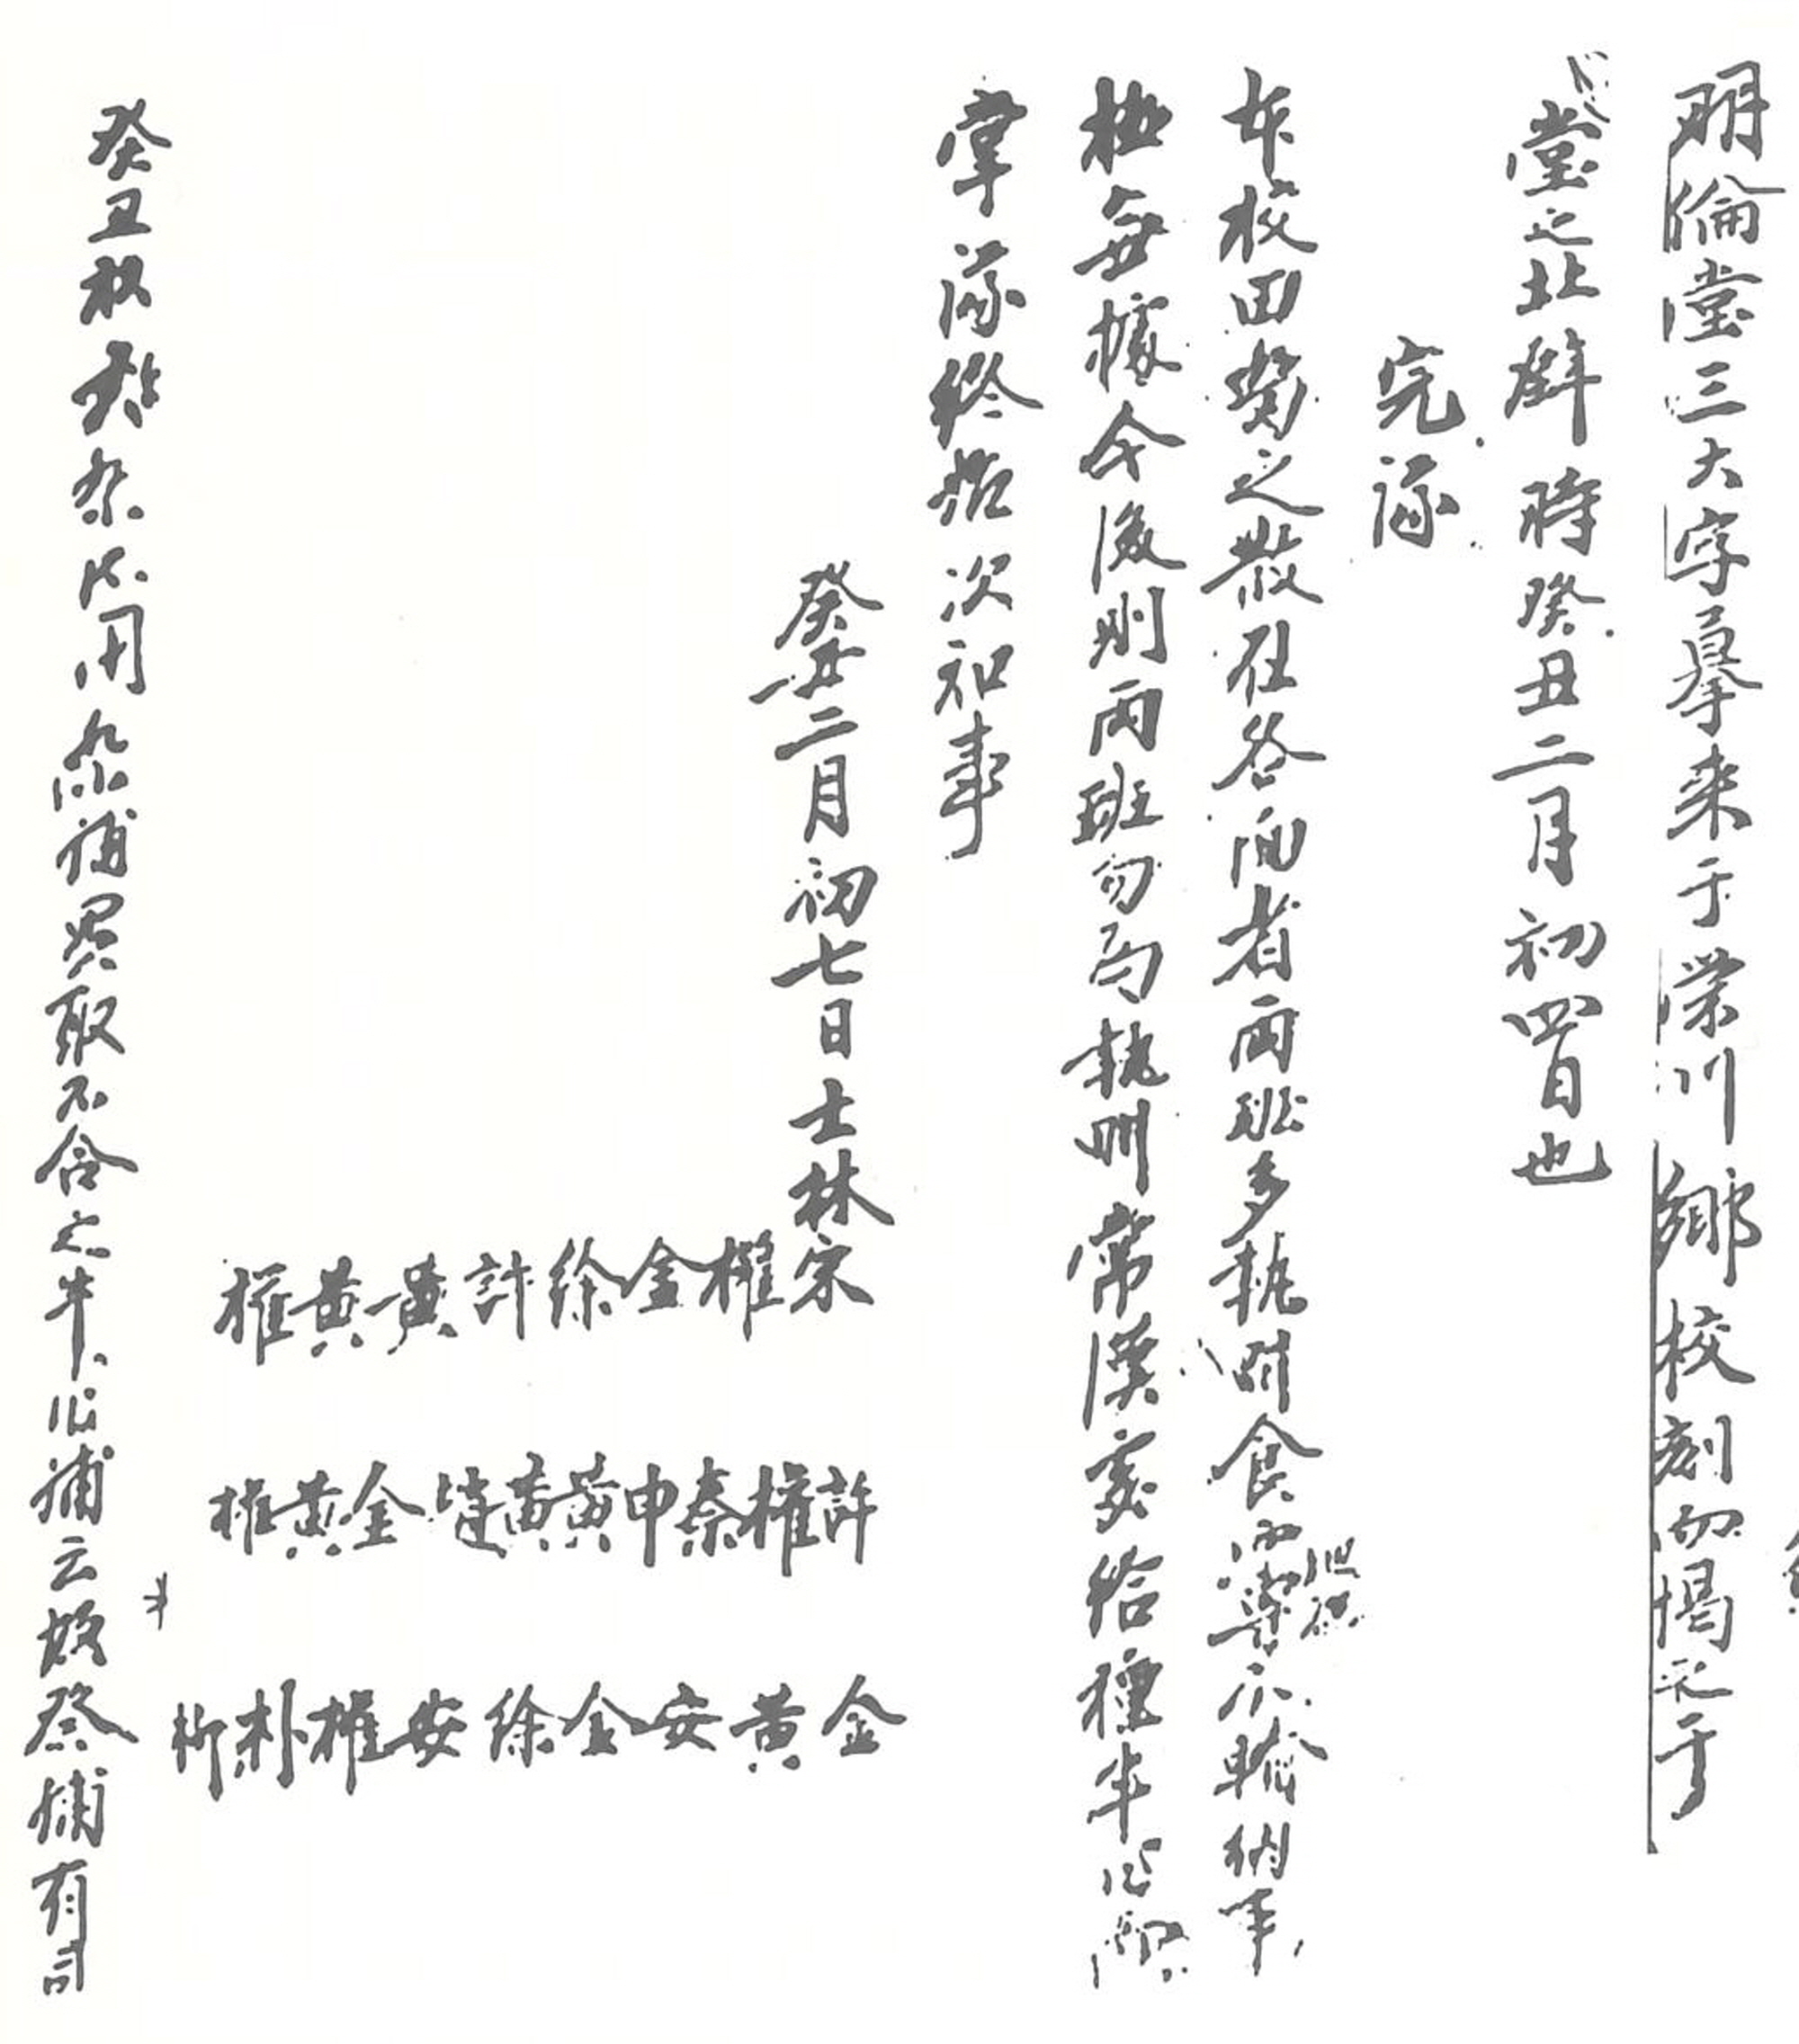 明倫堂三大字摹来于榮川鄕校刻而揭之于
堂之北壁時癸丑二月初四日也
完議
本校田畓之散在各面者兩班多執耕食而專不輸納事
極無據今後則兩班勿爲執耕常漢處給種半
掌議終始次知事
癸丑二月初七日士林宋
權 金 徐 許 黃 黃 權
許 權 秦 申 黃 黃 金 黃 權
金 黃 安 金 徐 安 權 朴 柳
癸丑秋 祭 用 脯 取不合之牛 脯云故祭脯有司